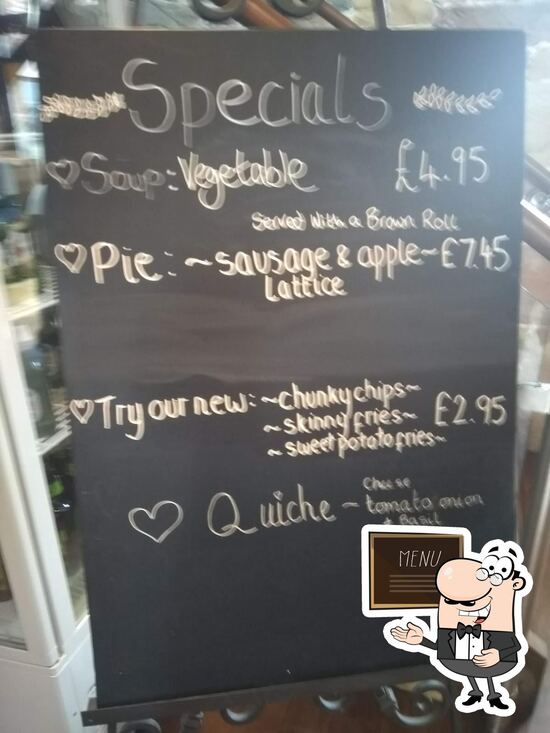 Specials
Soup: Vegetable £4.95
Served With a Brown Roll
Pie: ~sausage & apple~ £7.45
Lattice
Try our new: ~chunky chips~
~skinny fries~ £2.95
~sweet potato fries~
Quiche ~ Cheese
tomato onion
& Basil
MENU